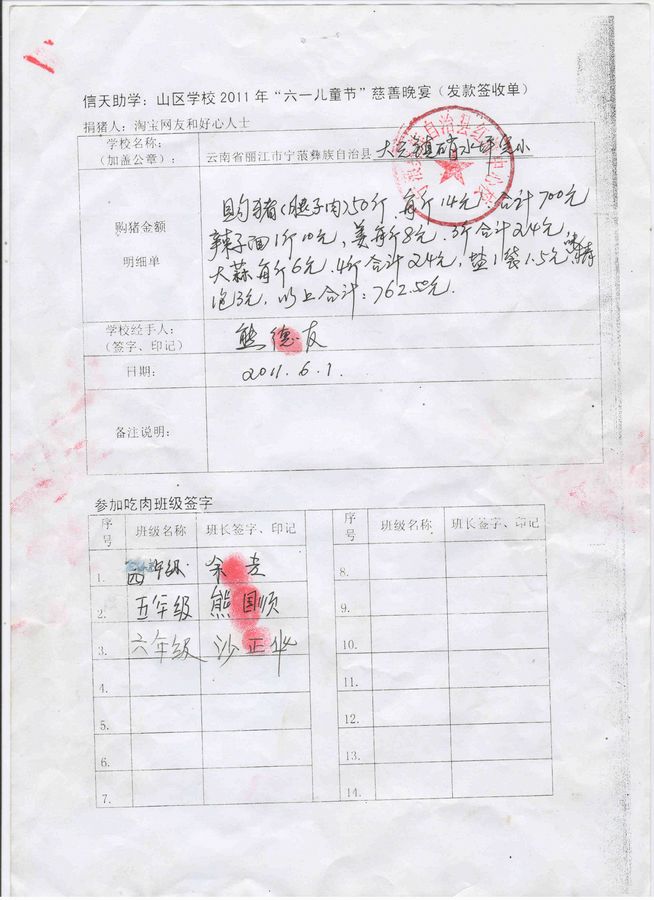 信天助学：山区学校2011年“六一儿童节”慈善晚宴（发款签收单）
捐猪人：淘宝网友和好心人士
学校名称：
（加盖公章）：
云南省丽江市宁蒗彝族自治县 大兴镇硝水坪完小
购猪金额
明细单
自治县
购猪(腿子肉)50斤，每斤14元，合计700元
辣子面1斤10元，姜每斤8元，3斤合计24元，
大蒜每斤6元，4斤合计24元，盐1袋1.5元，
3元，以上合计：762.50元.
学校经手人：
（签字、印记）
熊德友
日期：
2011.6.1.
备注说明：
参加吃肉班级签字
序号 班级名称 班长签字、印记 序号 班级名称 班长签字、印记
1. 四年级 余 8.
2. 五年级 熊国顺 9.
3. 六年级 沙正华 10.
4. 11.
5. 12.
6. 13.
7. 14.